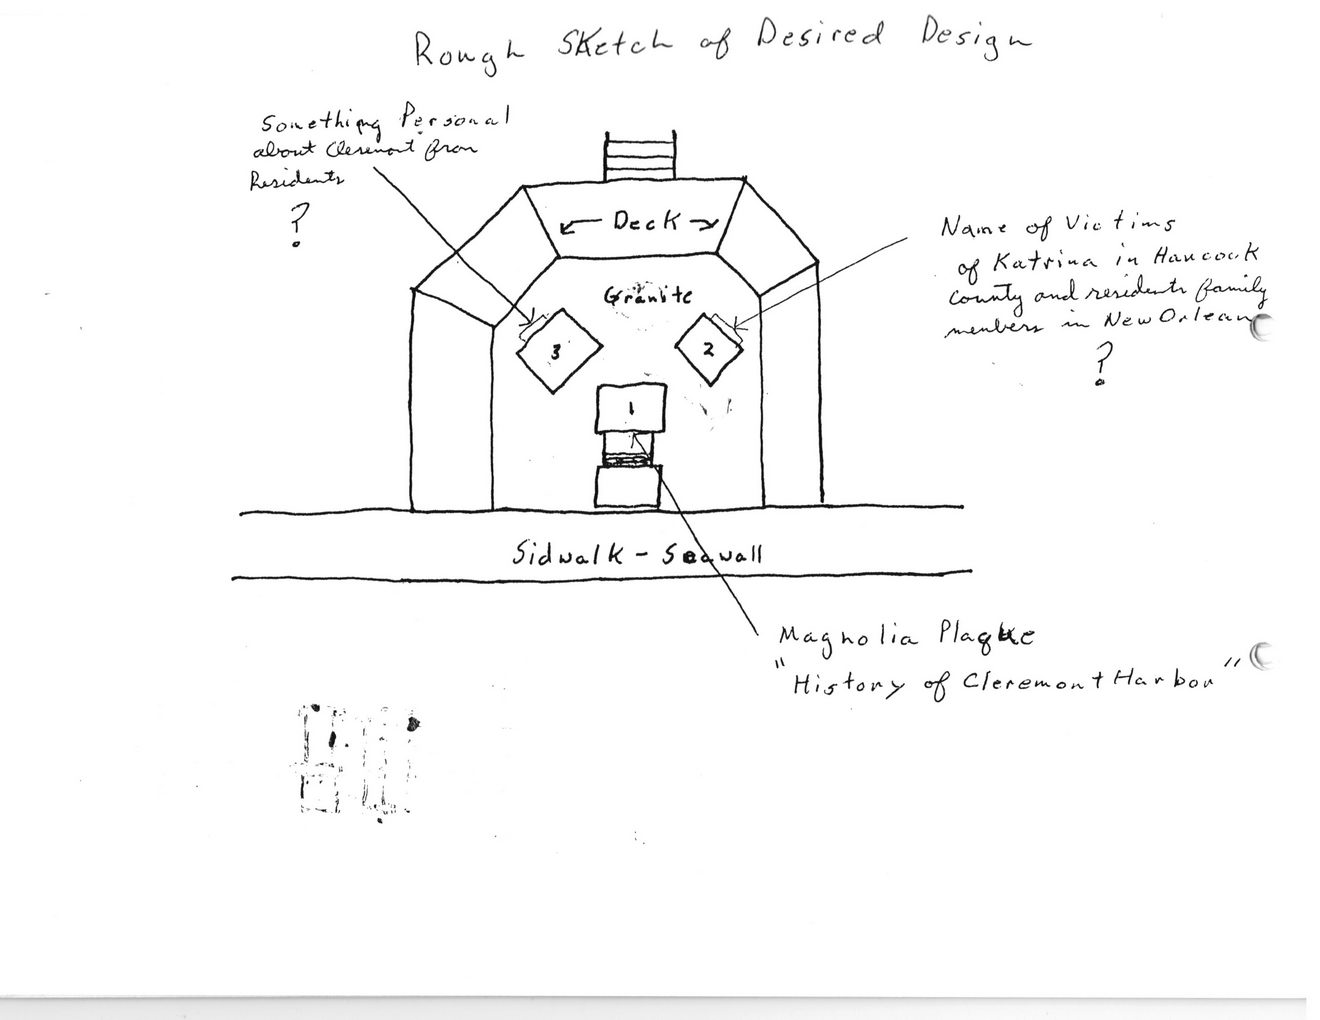 Rough Sketch of Desired Design
Something Personal
about Cleremont from
Residents
?
← Deck →
Name of Victims
of Katrina in Hancock
County and residents family
members in New Orleans
?
Granite
3
2
1
Sidwalk - Seawall
Magnolia Plaque
"History of Cleremont Harbor"